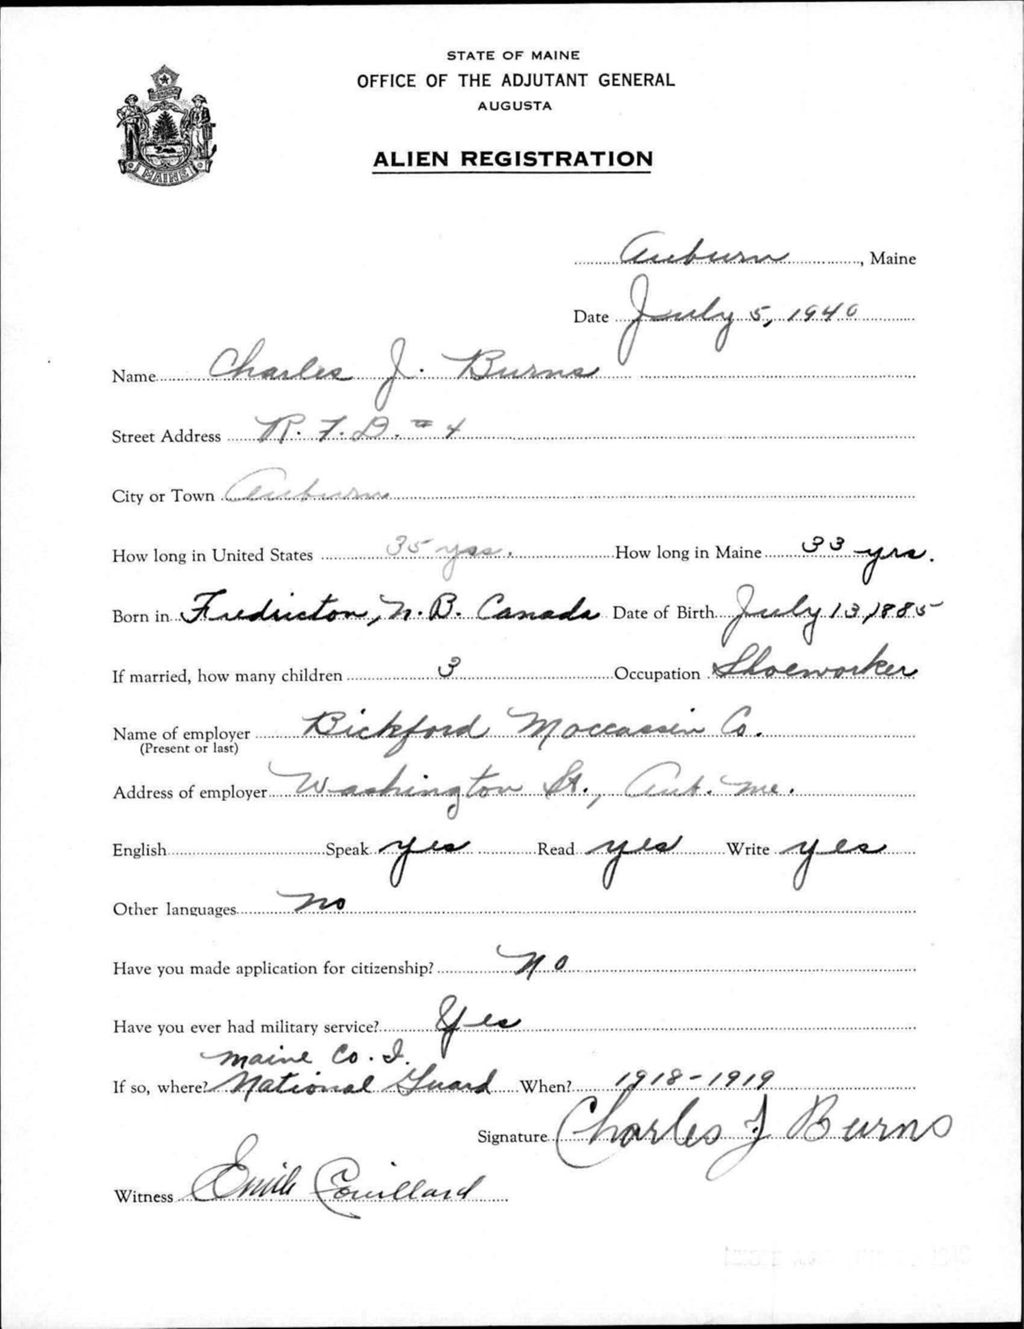 STATE OF MAINE
OFFICE OF THE ADJUTANT GENERAL
AUGUSTA
ALIEN REGISTRATION
MAINE
Auburn, Maine
Date July 5, 1940
Name Charles J. Burns
Street Address R.F.D. #4
City or Town Auburn
How long in United States 35 yrs. How long in Maine 33 yrs.
Born in Fredricton, N.B. Canada Date of Birth July 13, 1885
If married, how many children 3 Occupation Shoeworker
Name of employer Bickford Moccassin Co.
(Present or last)
Address of employer Washington St., Aub. Me.
English Speak yes Read yes Write yes
Other languages no
Have you made application for citizenship? No
Have you ever had military service? Yes
Maine Co. I.
If so, where? National Guard When? 1918-1919
Signature Charles J Burns
Witness Emile Couillard